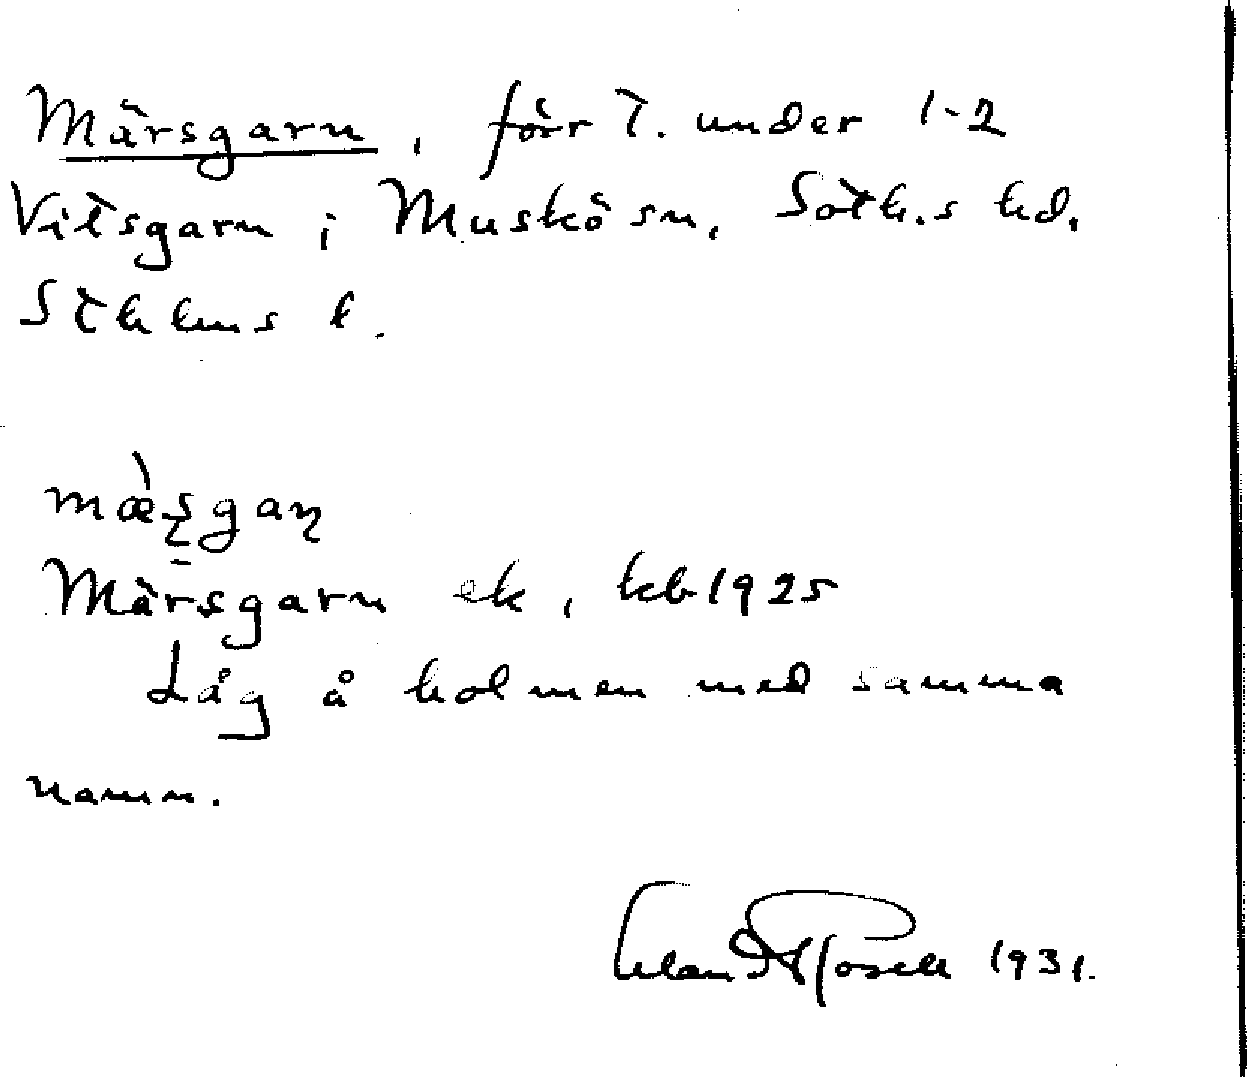 Märsgarn, förr t. under 1-2
Vitsgarn i Muskö sn, Soth.s hd.
Sthlms l.
mæ̀ʂgaɳ
Märsgarn ek, kb 1925
Låg å holmen med samma
namn.
1931.